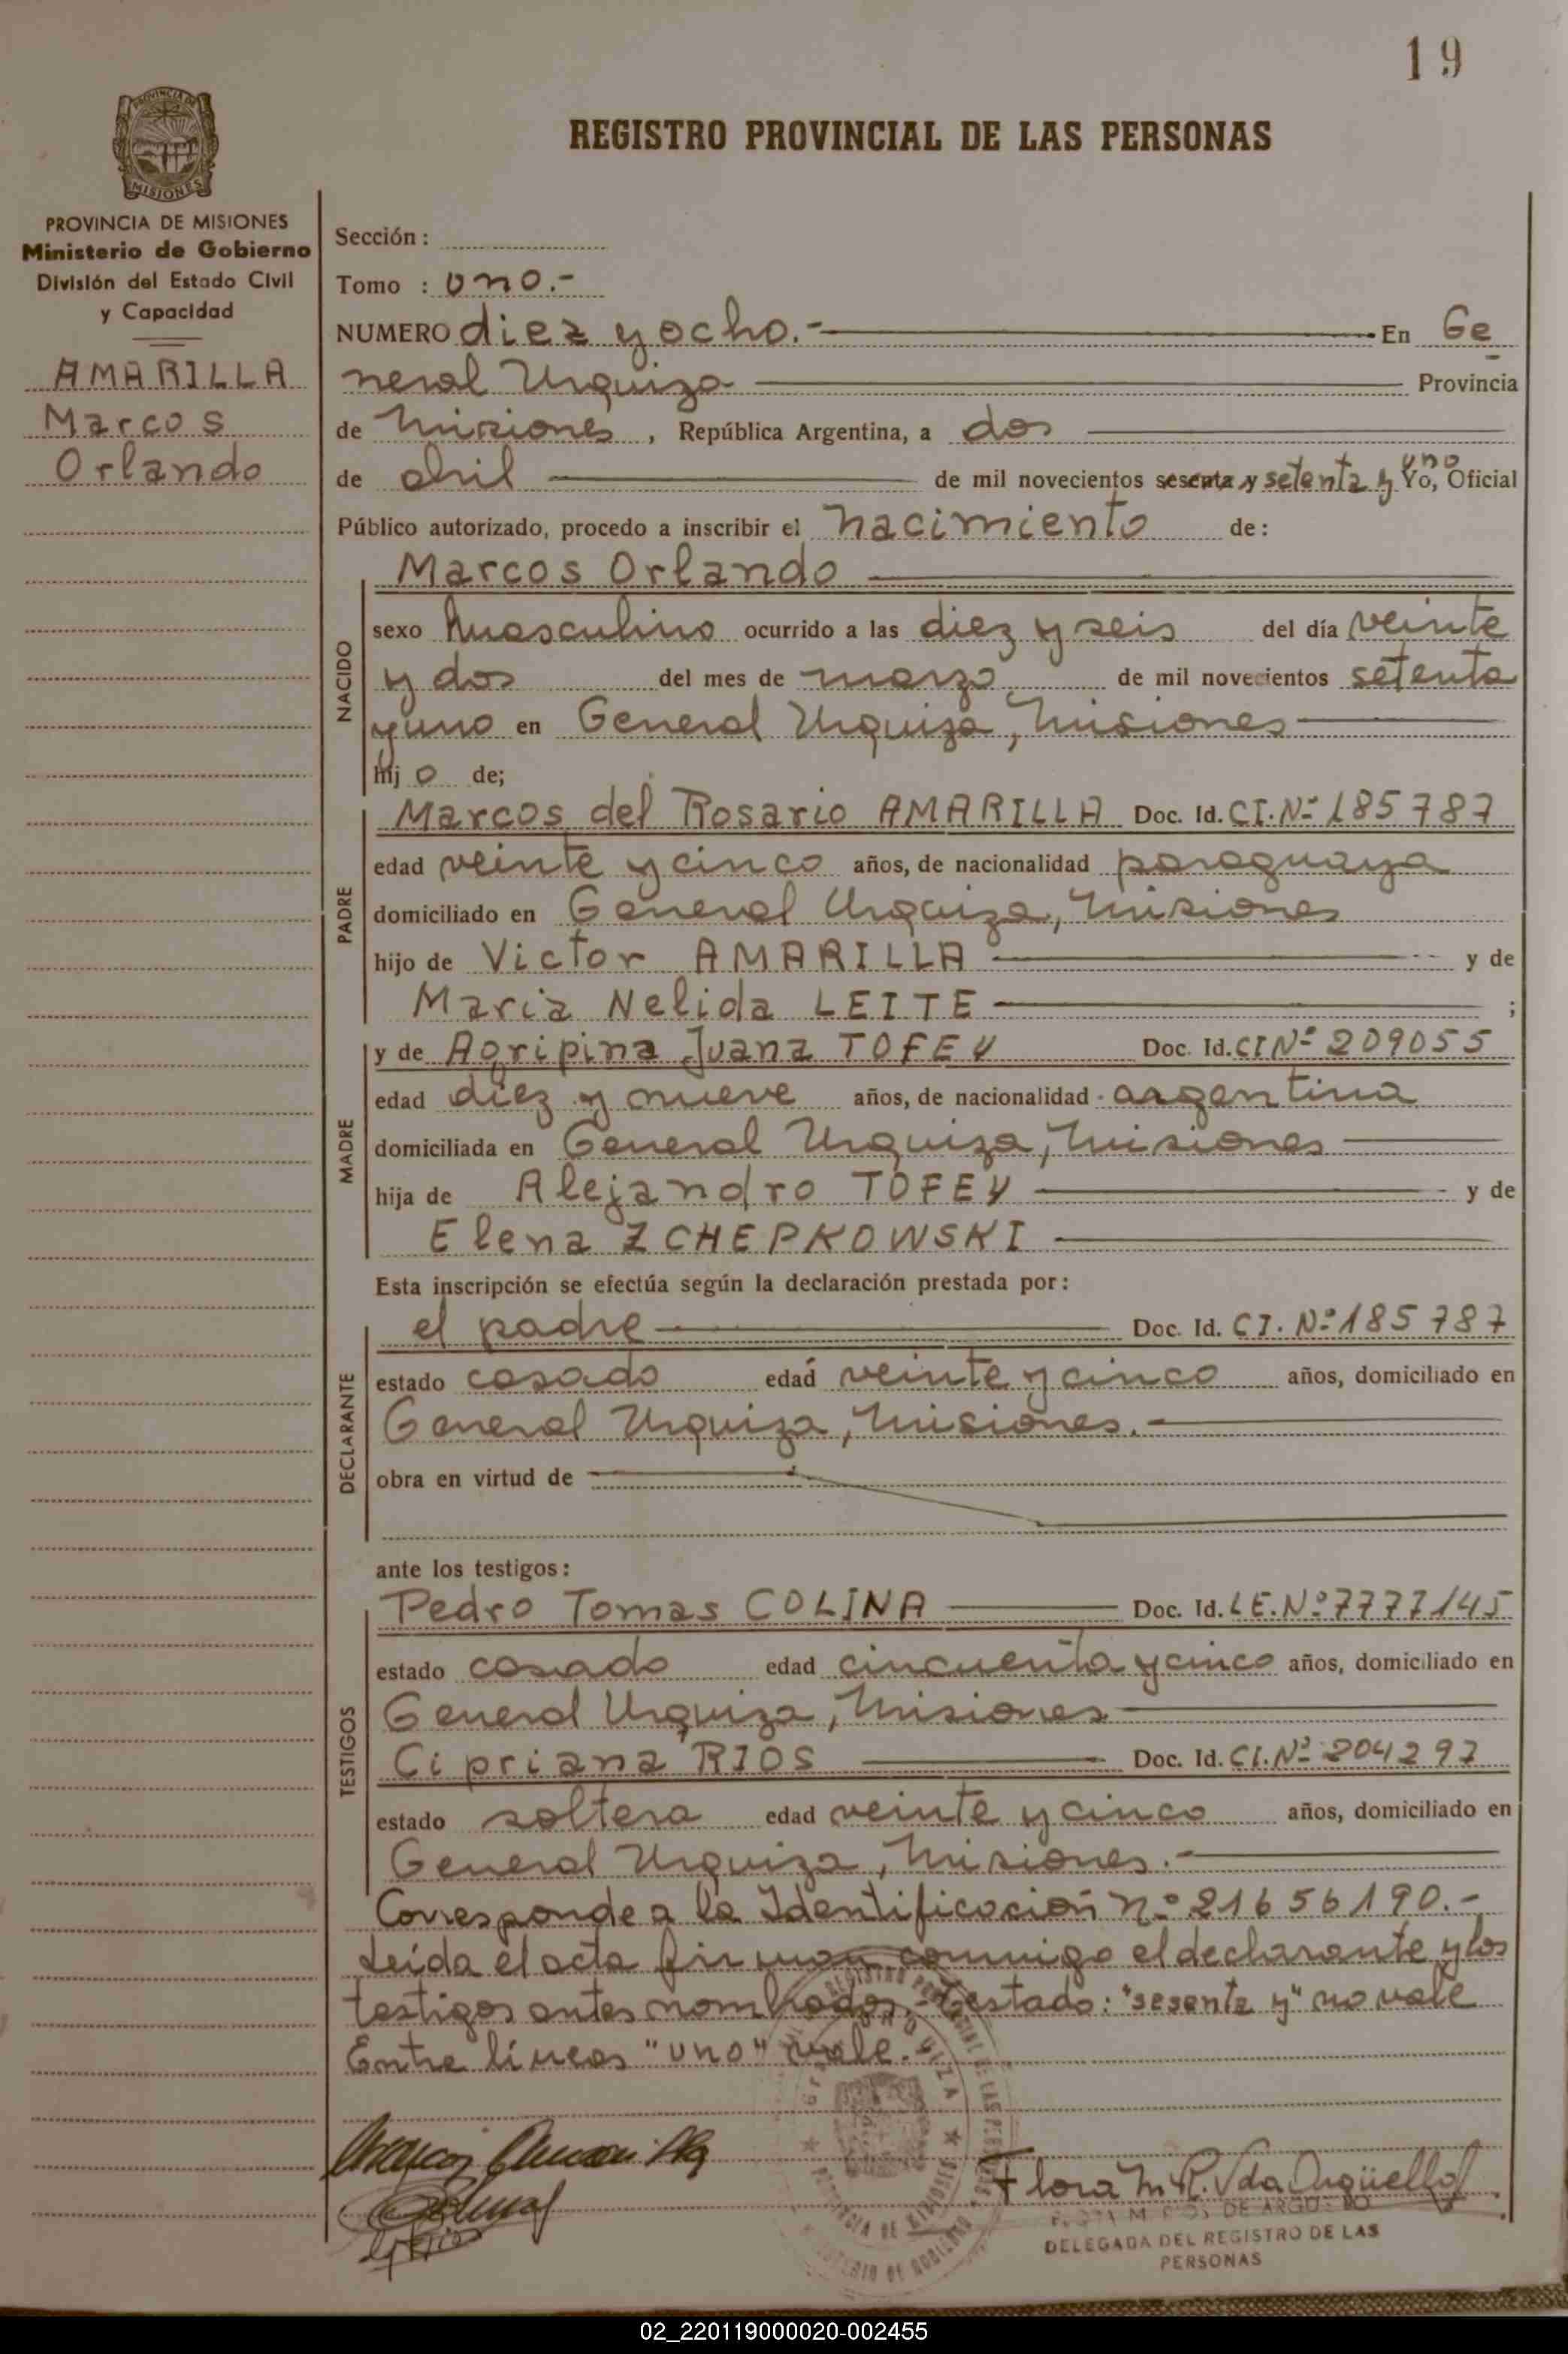 19
PROVINCIA DE
MISIONES
REGISTRO PROVINCIAL DE LAS PERSONAS
PROVINCIA DE MISIONES
Ministerio de Gobierno
División del Estado Civil
y Capacidad
AMARILLA
Marcos
Orlando
Sección :
Tomo : uno.-
NUMERO diez y ocho.- En Ge
neral Urquiza Provincia
de Misiones, República Argentina, a dos
de abril de mil novecientos sesenta y setenta y uno Yo, Oficial
Público autorizado, procedo a inscribir el nacimiento de:
NACIDO
Marcos Orlando
sexo masculino ocurrido a las diez y seis del día veinte
y dos del mes de marzo de mil novecientos setenta
y uno en General Urquiza, Misiones
hij o de;
PADRE
Marcos del Rosario AMARILLA Doc. Id. CI. Nº 185787
edad veinte y cinco años, de nacionalidad paraguaya
domiciliado en General Urquiza, Misiones
hijo de Victor AMARILLA y de
Maria Nelida LEITE ;
MADRE
y de Agripina Juana TOFEY Doc. Id. CI Nº 209055
edad diez y nueve años, de nacionalidad argentina
domiciliada en General Urquiza, Misiones
hija de Alejandro TOFEY y de
Elena ZCHEPKOWSKI
Esta inscripción se efectúa según la declaración prestada por:
DECLARANTE
el padre Doc. Id. CI. Nº 185787
estado casado edad veinte y cinco años, domiciliado en
General Urquiza, Misiones.-
obra en virtud de
ante los testigos:
TESTIGOS
Pedro Tomas COLINA Doc. Id. LE. Nº 7777145
estado casado edad cincuenta y cinco años, domiciliado en
General Urquiza, Misiones
Cipriana RIOS Doc. Id. CI. Nº 204297
estado soltera edad veinte y cinco años, domiciliado en
General Urquiza, Misiones.-
Corresponde a la Identificación nº 21656190.-
Leída el acta firman conmigo el declarante y los
testigos antes nombrados.- Testado: "sesenta y" no vale
Entre líneas "uno" vale.
Marcos Amarilla
Flora M. R. Vda Argüello
DE ARGÜELLO
DELEGADA DEL REGISTRO DE LAS
PERSONAS
02_220119000020-002455